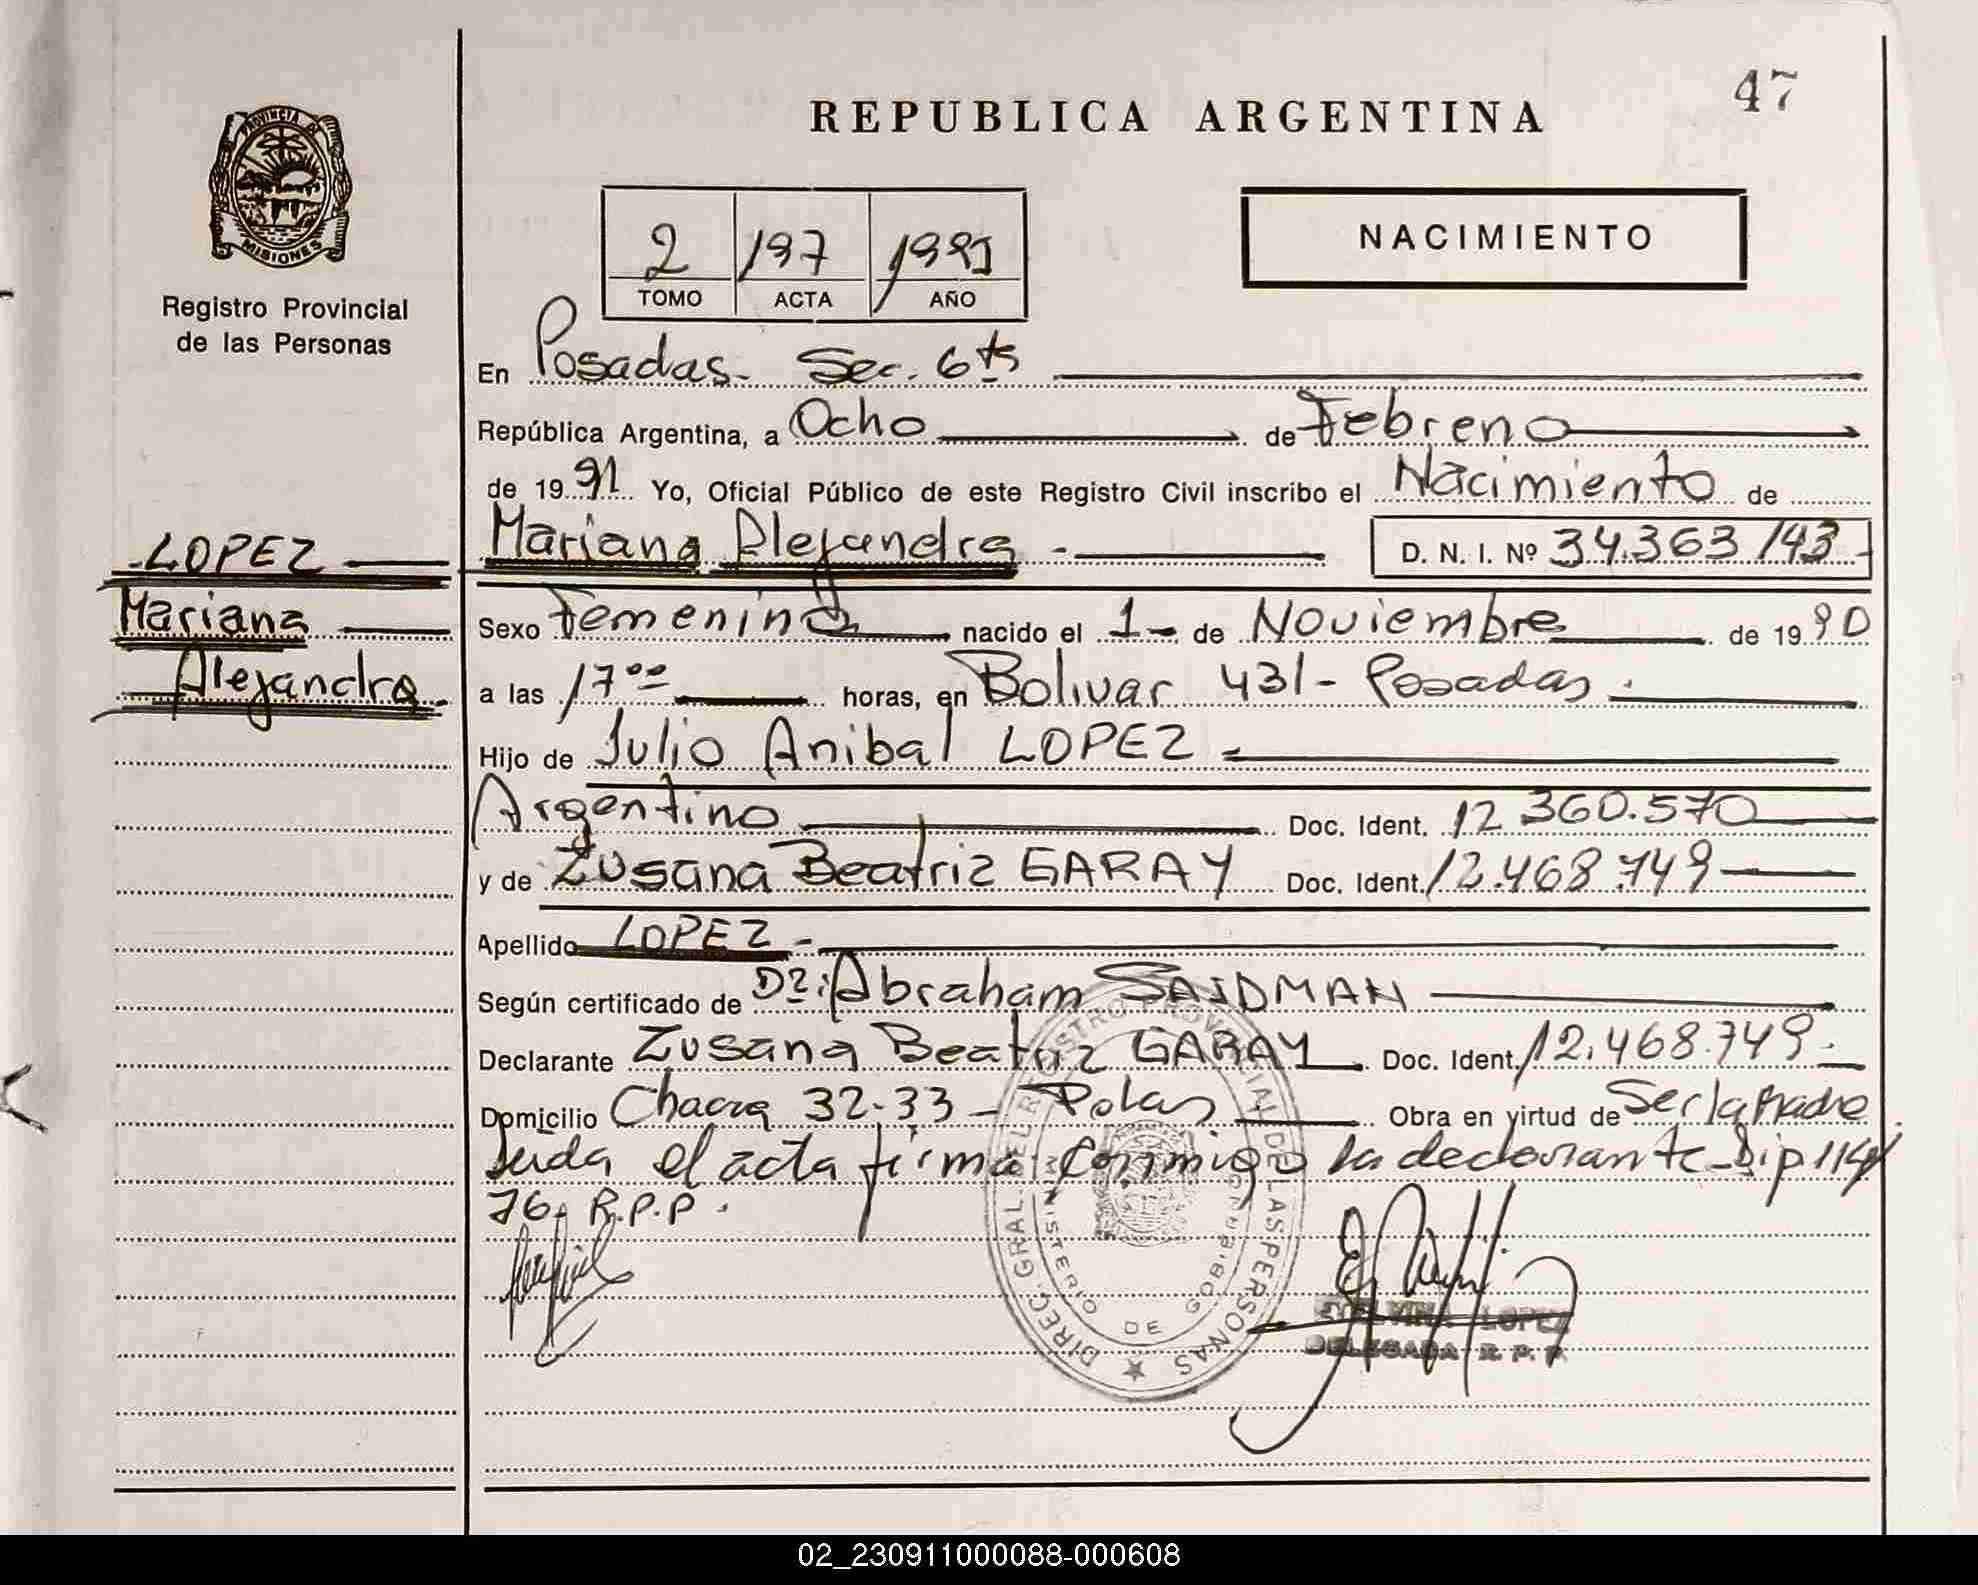 47
REPUBLICA ARGENTINA
PROVINCIA DE
MISIONES
Registro Provincial
de las Personas
2 197 1991
TOMO ACTA AÑO
NACIMIENTO
En Posadas - Sec. 6ta
República Argentina, a Ocho de Febrero
de 1991 Yo, Oficial Público de este Registro Civil inscribo el Nacimiento de
LOPEZ
Mariana
Alejandra
Mariana Alejandra - D. N. I. Nº 34.363.143-
Sexo Femenino nacido el 1- de Noviembre de 1990
a las 17ºº horas, en Bolivar 431 - Posadas.
Hijo de Julio Anibal LOPEZ
Argentino Doc. Ident. 12.360.570
y de Zusana Beatriz GARAY Doc. Ident. 12.468.749
Apellido LOPEZ -
Según certificado de Dr: Abraham SAIDMAN
Declarante Zusana Beatriz GARAY Doc. Ident. 12.468.749.-
Domicilio Chacra 32-33 - Obra en virtud de Ser la Madre
Leida el acta firma conmigo la declarante - Disp 114/
76. R.P.P.
DIREC. GRAL. DEL REGISTRO PROVINCIAL DE LAS PERSONAS
MINISTERIO DE GOBIERNO
LOPEZ
DELEGADA R. P. P.
02_230911000088-000608